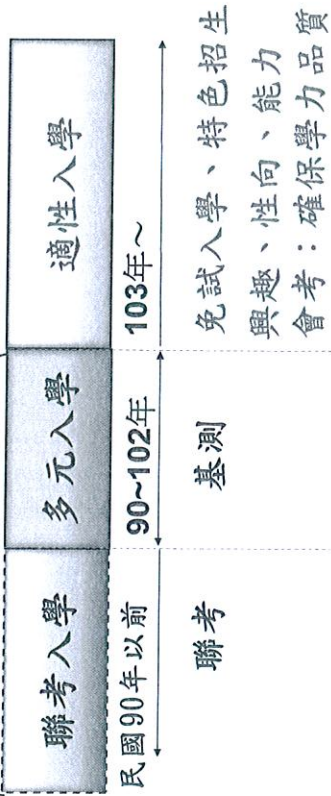 聯考入學
多元入學
適性入學
民國90年以前
90~102年
103年~
聯考
基測
免試入學、特色招生
興趣、性向、能力
會考：確保學力品質